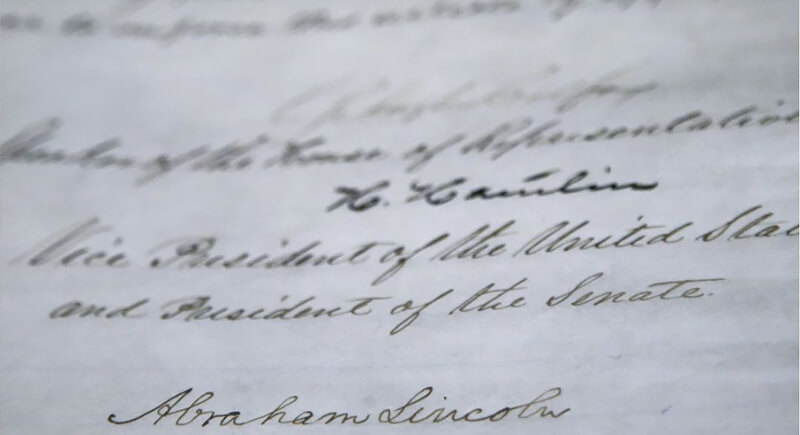 Schuyler Colfax
Speaker of the House of Representatives
H. Hamlin
Vice President of the United Stat
and President of the Senate.
Abraham Lincoln